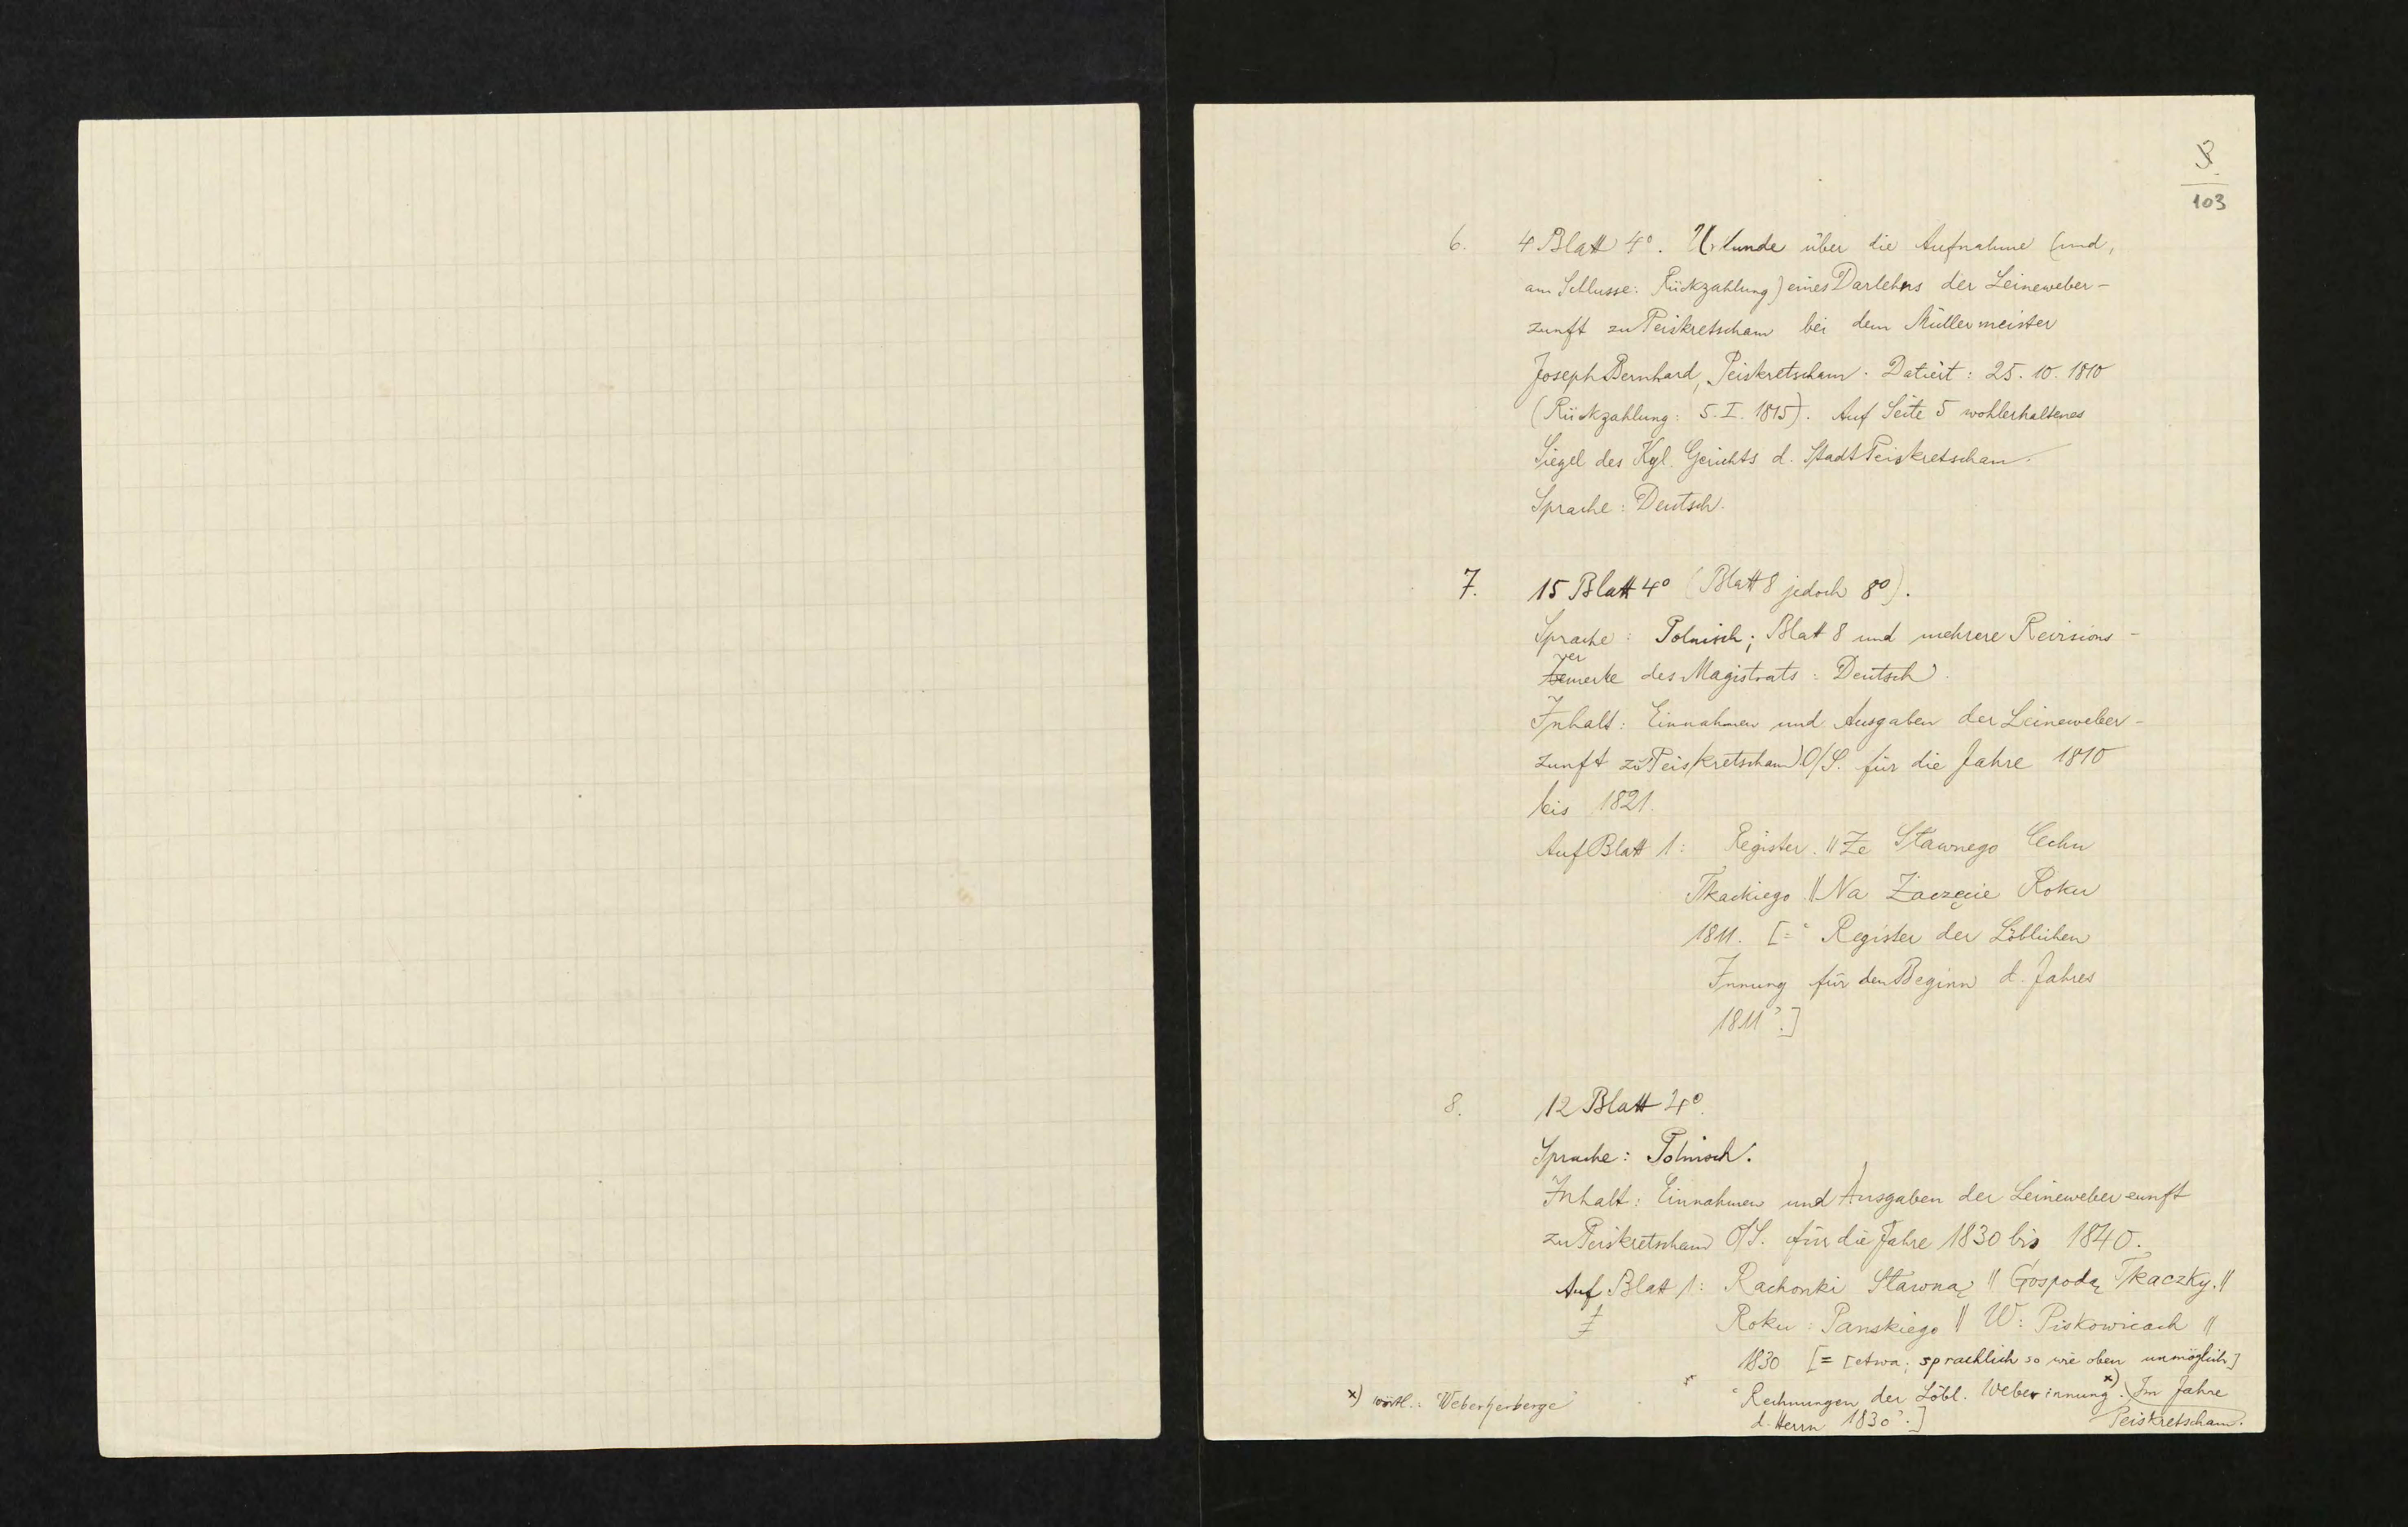 3
103
6. 4 Blatt 4°. Urkunde über die Aufnahme (und,
am Schlusse: Rückzahlung) eines Darlehns der Leineweber-
zunft zu Peiskretscham bei dem Müllermeister
Joseph Bernhard, Peiskretscham. Datiert: 25. 10. 1810
(Rückzahlung: 5. I. 1815). Auf Seite 5 wohlerhaltenes
Siegel des Kgl. Gerichts d. Stadt Peiskretscham.
Sprache: Deutsch.
7. 15 Blatt 4° (Blatt 8 jedoch 8°).
Sprache: Polnisch; Blatt 8 und mehrere Revisions-
vermerke des Magistrats: Deutsch.
Inhalt: Einnahmen und Ausgaben der Leineweber-
zunft zu Peiskretscham O/S. für die Jahre 1810
bis 1821.
Auf Blatt 1: Register. || Ze Sławnego Cechu
Tkackiego || Na Zaczęcie Roku
1811. [= "Register der Löblichen
Innung für den Beginn d. Jahres
1811".]
8. 12 Blatt 4°.
Sprache: Polnisch.
Inhalt: Einnahmen und Ausgaben der Leineweberzunft
zu Peiskretscham O/S. für die Jahre 1830 bis 1840.
Auf Blatt 1: Rachonki Sławną || Gospodą Tkaczky. ||
Roku: Panskiego || W: Piskowicach ||
1830 [= [etwa; sprachlich so wie oben unmöglich]
"Rechnungen der Löbl. Weberinnung x). Im Jahre
d. Herrn 1830".] Peiskretscham.
x) wörtl.: "Weberherberge"